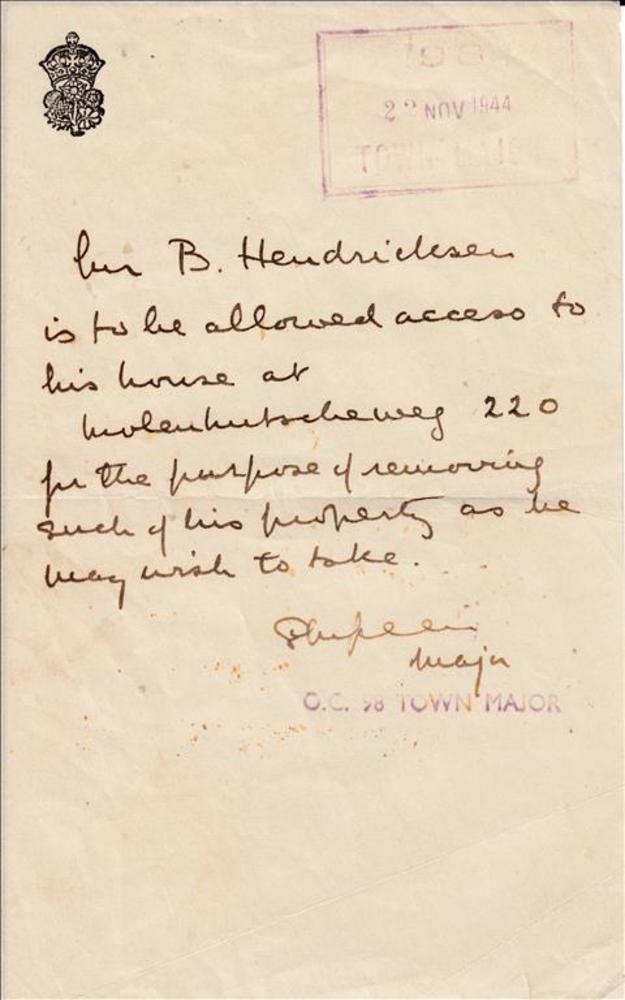 98
22 NOV 1944
TOWN MAJOR
Mr B. Hendricksen
is to be allowed access to
his house at
Molenhutscheweg 220
for the purpose of removing
such of his property as he
may wish to take.
Major
O.C. 98 TOWN MAJOR